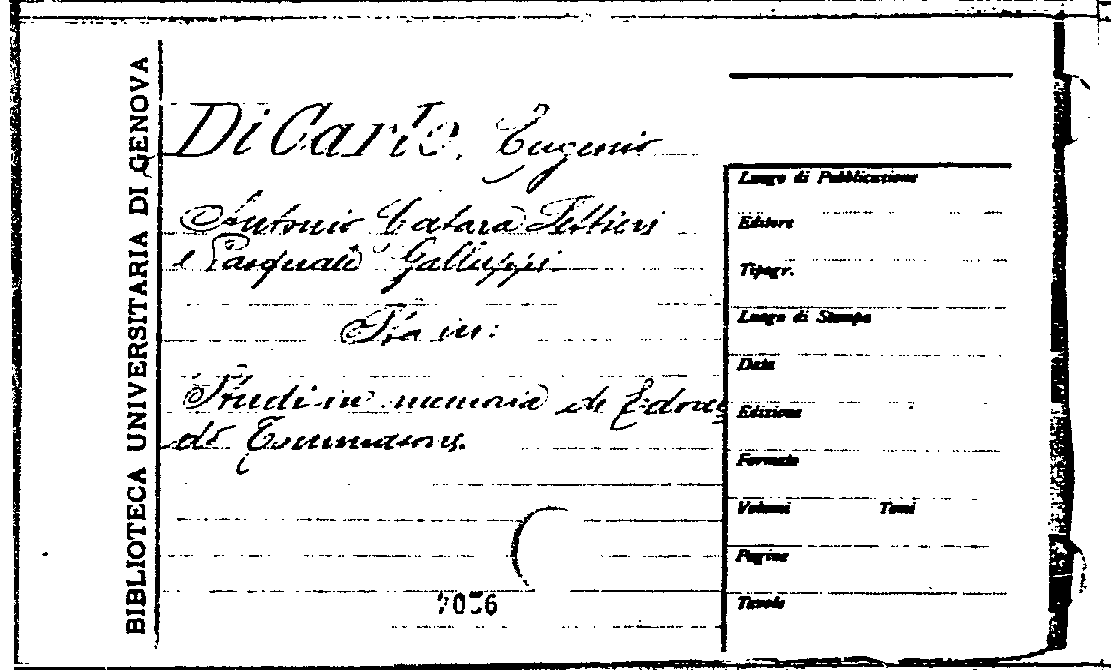 BIBLIOTECA UNIVERSITARIA DI GENOVA
Di Carlo, Eugenio
Antonio Catara Lettieri
e Pasquale Galluppi
Sta in:
Studi in memoria di
di Tommasoni.
Luogo di Pubblicazione
Editore
Tipogr.
Luogo di Stampa
Data
Edizione
Formato
Volumi Tomi
Pagine
Tavole